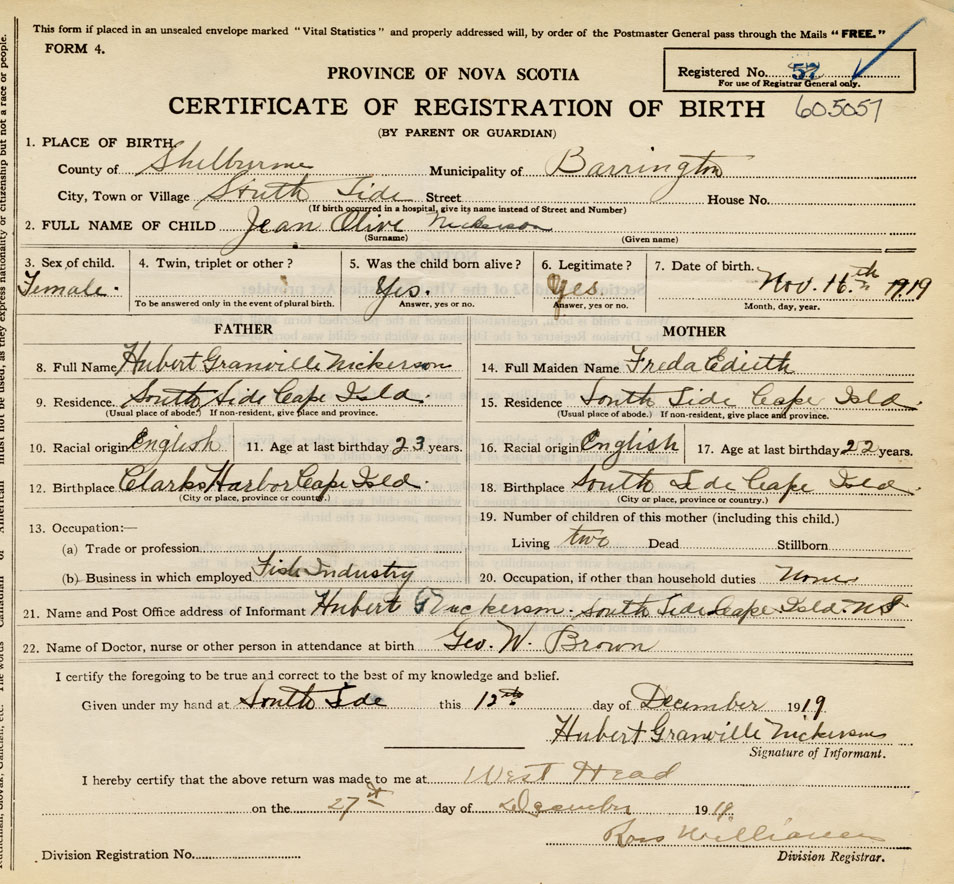 This form if placed in an unsealed envelope marked "Vital Statistics" and properly addressed will, by order of the Postmaster General pass through the Mails "FREE."
FORM 4.
Registered No. 57
For use of Registrar General only.
PROVINCE OF NOVA SCOTIA
CERTIFICATE OF REGISTRATION OF BIRTH 605057
(BY PARENT OR GUARDIAN)
1. PLACE OF BIRTH
County of Shelburne Municipality of Barrington
City, Town or Village South Side Street House No.
(If birth occurred in a hospital, give its name instead of Street and Number)
2. FULL NAME OF CHILD Jean Olive Nickerson
(Surname) (Given name)
3. Sex of child. 4. Twin, triplet or other? 5. Was the child born alive? 6. Legitimate? 7. Date of birth.
Female. Yes. Yes Nov. 16th 1919
To be answered only in the event of plural birth. Answer, yes or no. Answer, yes or no. Month, day, year.
FATHER MOTHER
8. Full Name Hubert Granville Nickerson 14. Full Maiden Name Freda Edith
9. Residence. South Side Cape Isld. 15. Residence South Side Cape Isld.
(Usual place of abode.) If non-resident, give place and province. (Usual place of abode.) If non-resident, give place and province.
10. Racial origin English 11. Age at last birthday 23 years. 16. Racial origin English 17. Age at last birthday 22 years.
12. Birthplace Clarks Harbor Cape Isld. 18. Birthplace South Side Cape Isld.
(City or place, province or country.) (City or place, province or country.)
13. Occupation:— 19. Number of children of this mother (including this child.)
(a) Trade or profession Living two Dead Stillborn
(b) Business in which employed Fish Industry 20. Occupation, if other than household duties None
21. Name and Post Office address of Informant Hubert G Nickerson. South Side Cape Isld. N S
22. Name of Doctor, nurse or other person in attendance at birth Geo. W. Brown
I certify the foregoing to be true and correct to the best of my knowledge and belief.
Given under my hand at South Side this 12th day of December 1919
Hubert Granville Nickerson
Signature of Informant.
I hereby certify that the above return was made to me at West Head
on the 27 day of December 1919.
Ross
Division Registration No. Division Registrar.